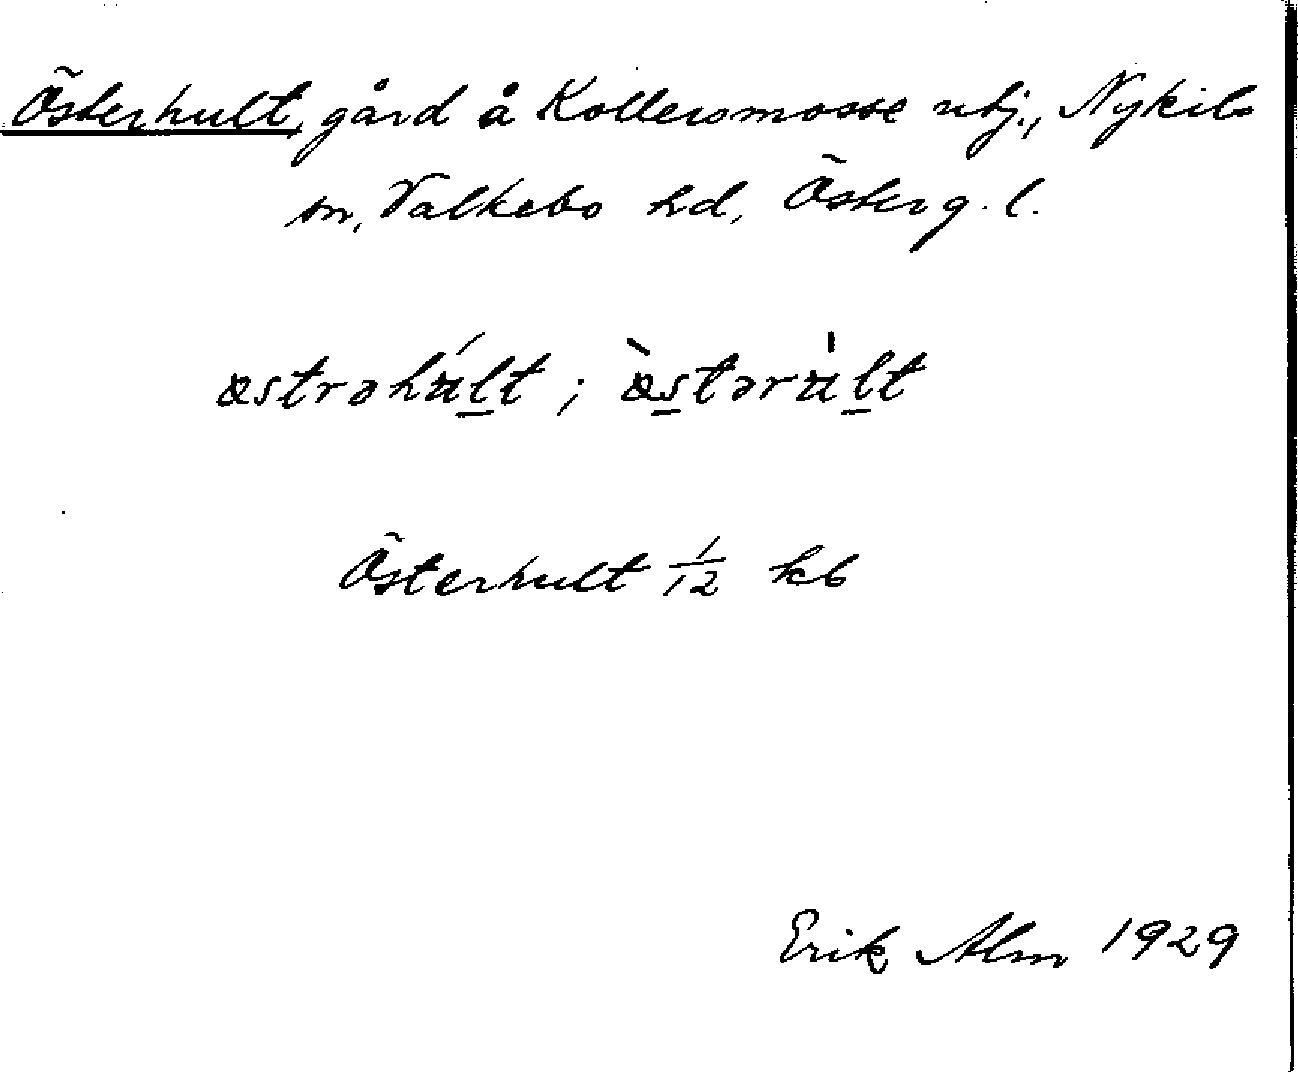 Österhult, gård å Kollersmosse utj., Nykils
sn, Valkebo hd, Österg. l.
östrəhúlt ; ö̀stərùlt
Österhult 1/12 kb
Erik Alm 1929